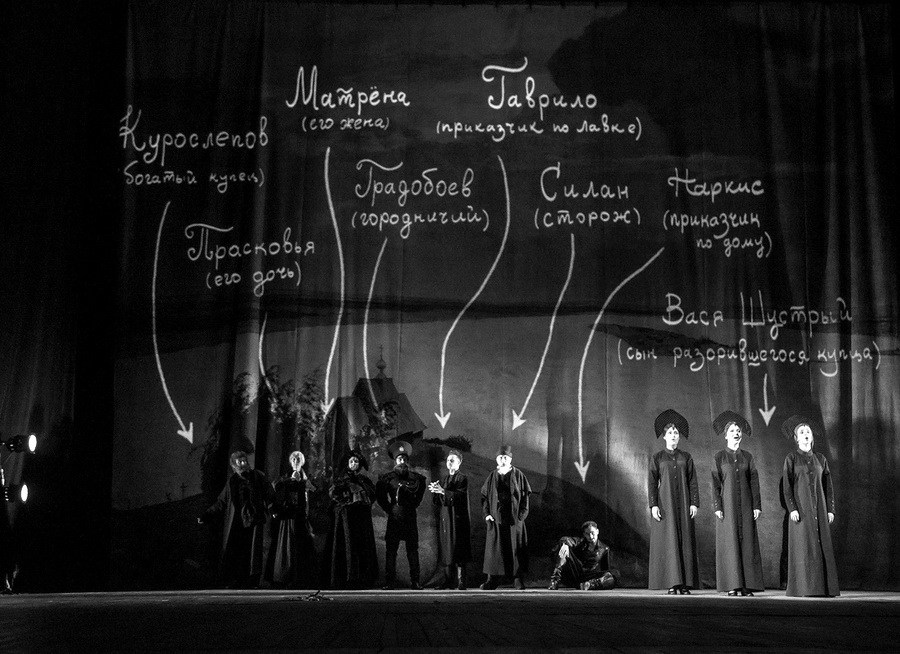 Матрёна
(его жена)
Гаврило
(приказчик по лавке)
Курослепов
богатый купец)
Градобоев
(городничий)
Силан
(сторож)
Наркис
(приказчик
по дому)
Прасковья
(его дочь)
Вася Шустрый
(сын разорившегося купца)